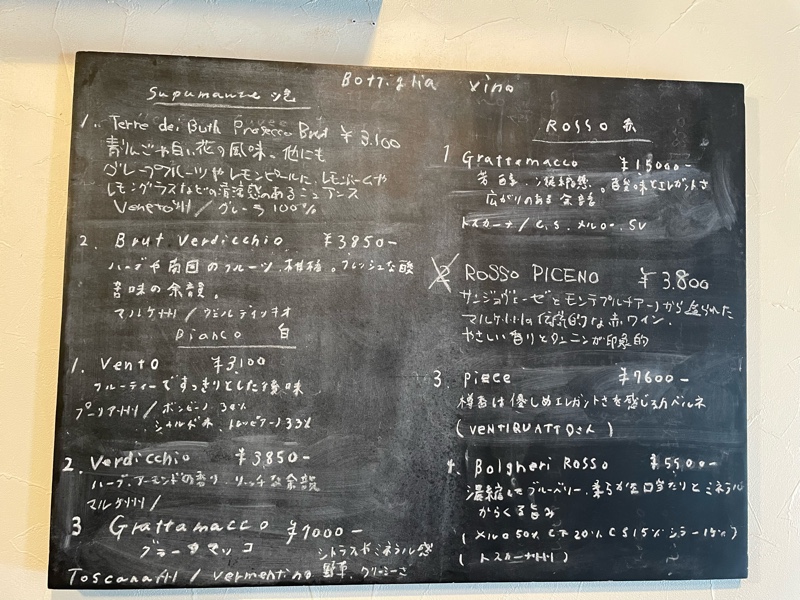 Bottiglia vino
Supumante 泡
1. Terre dei Buth Prosecco Brut ¥3.100
青りんごや白い花の風味。他にも
グレープフルーツやレモンピールに、レモンバームや
レモングラスなどの清涼感のあるニュアンス
Veneto州 / グレーラ100%
2. Brut Verdicchio ¥3850-
ハーブや南国のフルーツ、柑橘。フレッシュな酸
苦味の余韻。
マルケ州 / ヴェルディッキオ
Bianco 白
1. Vento ¥3,100
フルーティーですっきりとした後味
プーリア州 / ボンビーノ 34%
シャルドネ、トレッビアーノ 33%
2. Verdicchio ¥3850-
ハーブ、アーモンドの香り、リッチな余韻
マルケ州 /
3 Grattamacco ¥7000-
グラータマッコ シトラスやミネラル感
Toscana州 / vermentino 野草、クリーミーさ
ROSSO 赤
1 Grattamacco ¥15000-
凝縮感。酸味とエレガントさ
広がりのある余韻
トスカーナ / C,S、メルロー、SV
2 ROSSO PICENO ¥3.800
サンジョヴェーゼとモンテプルチアーノから造られた
マルケ州の伝統的な赤ワイン、
やさしい香りとタンニンが印象的
3. piece ¥7600-
樽香は優しめエレガントさを感じるカベルネ
(VENTIQUATTROさん)
4. Bolgheri Rosso ¥5500-
濃縮したブルーベリー、柔らかな口当たりとミネラル
からくる旨み
(メルロ50% CF20% CS15% シラー15%)
(トスカーナ州)